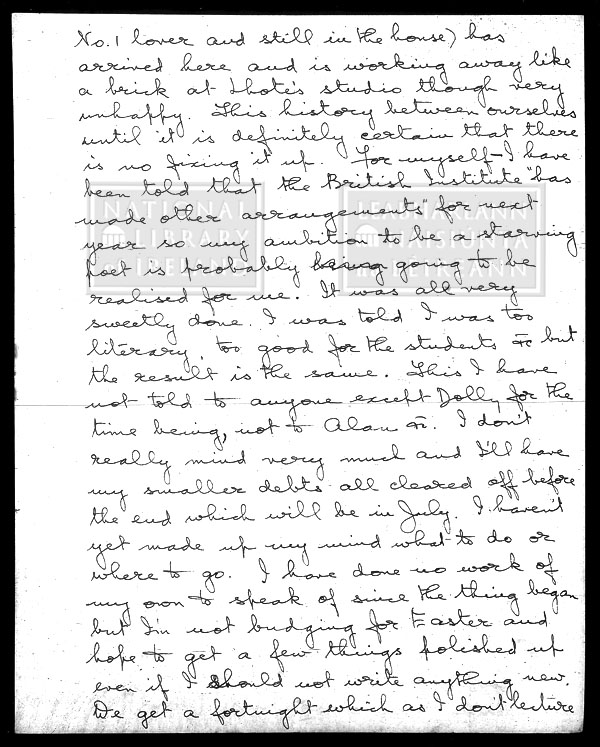 No. 1 lover and still in the house) has
arrived here and is working away like
a brick at Lhote's studio though very
unhappy. This history between ourselves
until it is definitely certain that there
is no fixing it up. For myself – I have
been told that the British Institute "has
made other arrangements" for next
year so my ambition to be a starving
poet is probably going to be
realised for me. It was all very
sweetly done. I was told I was too
literary, too good for the students but
the result is the same. This I have
not told to anyone except Dolly, for the
time being, not to Alan. I don't
really mind very much and I'll have
my smaller debts all cleared off before
the end which will be in July. I haven't
yet made up my mind what to do or
where to go. I have done no work of
my own to speak of since the thing began
but I'm not budging for Easter and
hope to get a few things polished up
even if I should not write anything new.
We get a fortnight which as I don't lecture
NATIONAL
LIBRARY
OF IRELAND
LEABHARLANN
NÁISIÚNTA
NA hÉIREANN